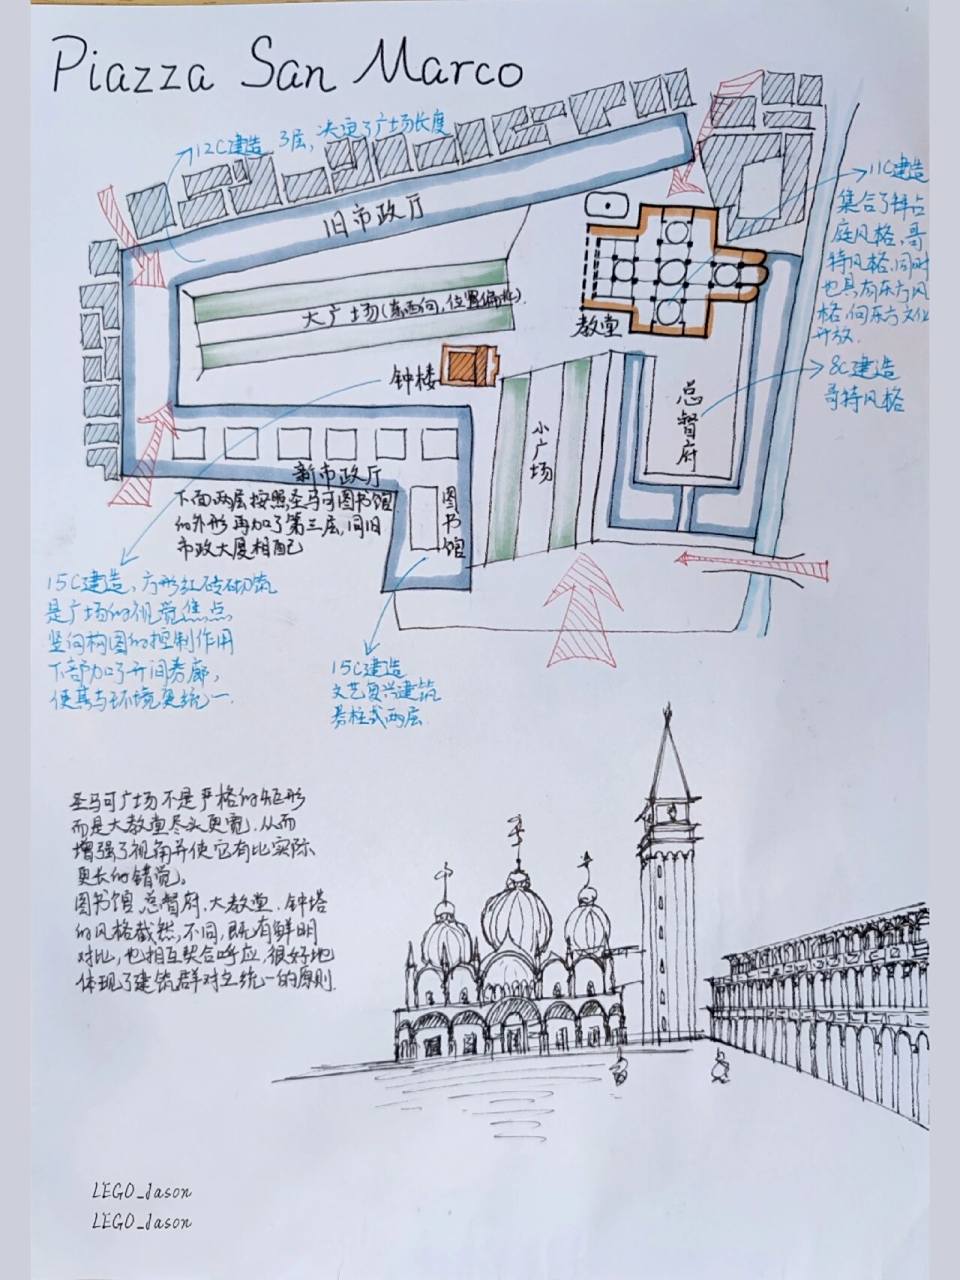 Piazza San Marco
12C建造 3层,决定了广场长度
旧市政厅
大广场(东西向,位置偏北)
教堂
11C建造
集合了拜占
庭风格,哥
特风格,同时
也具有东方风
格,向东方文化
开放.
钟楼
8C建造
哥特风格
总督府
小广场
新市政厅
下面两层按照圣马可图书馆
的外形再加了第三层,同旧
市政大厦相配
图书馆
15C建造,方形红砖砌筑
是广场的视觉焦点,
竖向构图的控制作用
下部加了开间券廊,
使其与环境更统一.
15C建造
文艺复兴建筑
券柱式两层
圣马可广场不是严格的矩形
而是大教堂尽头更宽,从而
增强了视角并使它有比实际
更长的错觉。
图书馆,总督府,大教堂,钟塔
的风格截然不同,既有鲜明
对比,也相互契合呼应,很好地
体现了建筑群对立统一的原则.
LEGO_Jason
LEGO_Jason